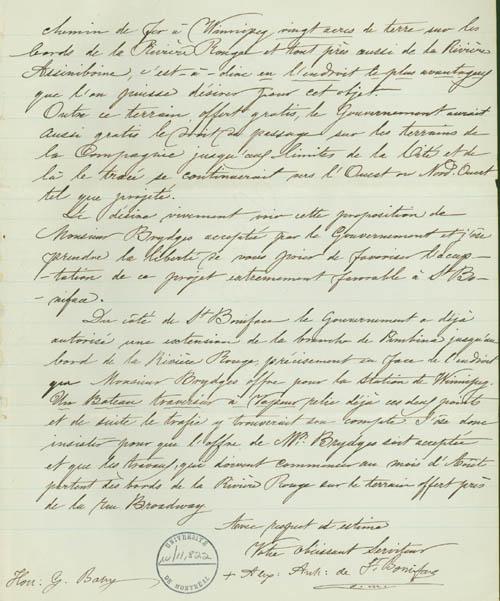 chemin de fer à Winnipeg, vingt acres de terre sur les
bords de la Rivière Rouge et tout près aussi de la Rivière
Assiniboine, c'est-à-dire en l'endroit le plus avantageux
que l'on puisse désirer pour cet objet.
Outre ce terrain, offert gratis, le Gouvernement aurait
aussi gratis le droit de passage sur les terrains de
la Compagnie jusqu'aux limites de la Cité et de
là le tracé se continuerait vers l'Ouest ou Nord-Ouest
tel que projeté.
Je désire vivement voir cette proposition de
Monsieur Brydges acceptée par le Gouvernement et j'ose
prendre la liberté de vous prier de favoriser l'accep-
-tation de ce projet extrêmement favorable à St Bo-
-niface.
Du côté de St Boniface le Gouvernement a déjà
autorisé une extension de la branche de Pembina jusqu'au
bord de la Rivière Rouge, précisement en face de l'endroit
que Monsieur Brydges offre pour la station de Winnipeg.
Un Bateau traversier à Vapeur relie déjà ces deux points
et de suite le trafic y trouverait son compte. J'ose donc
insister pour que l'offre de Mr Brydges soit acceptée
et que les travaux, qui doivent commencer au mois d'Août
partent des bords de la Rivière Rouge sur le terrain offert près
de la rue Broadway
Avec respect et estime
Votre obéissant Serviteur
+ Alex. Arch: de St Boniface
o.m.i.
Hon: G. Baby
UNIVERSITÉ
u/11,822
DE MONTRÉAL